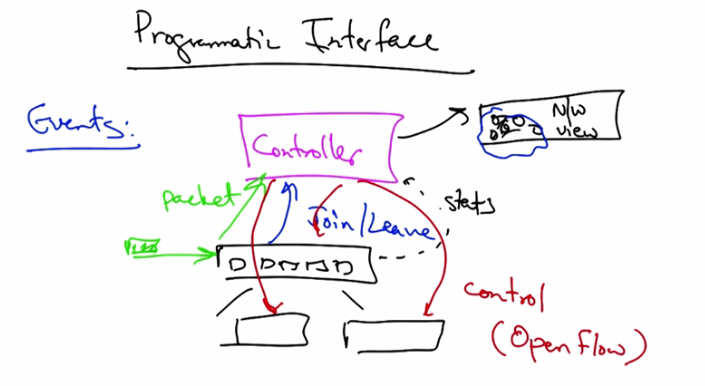 Programmatic Interface
Events:
Controller
N/W
view
packet
stats
Join/Leave
control
(Openflow)